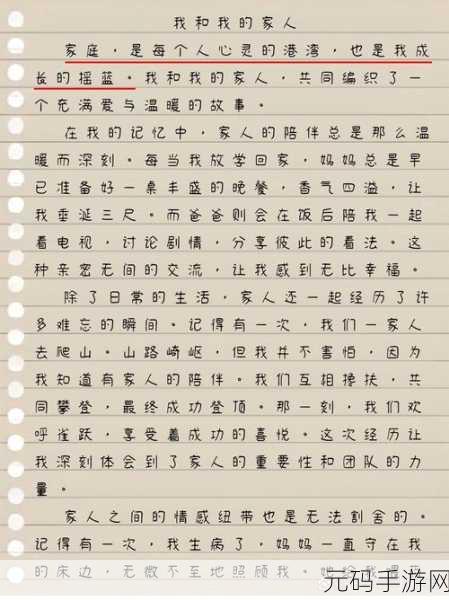 我和我的家人
家庭，是每个人心灵的港湾，也是我成
长的摇篮。我和我的家人，共同编织了一
个充满爱与温暖的故事。
在我的记忆中，家人的陪伴总是那么温
暖而深刻。每当我放学回家，妈妈总是早
已准备好一桌丰盛的晚餐，香气四溢，让
我垂涎三尺。而爸爸则会在饭后陪我一起
看电视，讨论剧情，分享彼此的看法。这
种亲密无间的交流，让我感到无比幸福。
除了日常的生活，家人还一起经历了许
多难忘的瞬间。记得有一次，我们一家人
去爬山。山路崎岖，但我并不害怕，因为
我知道有家人的陪伴。我们互相搀扶，共
同攀登，最终成功登顶。那一刻，我们欢
呼雀跃，享受着成功的喜悦。这次经历让
我深刻体会到了家人的重要性和团队的力
量。
家人之间的情感纽带也是无法割舍的。
记得有一次，我生病了，妈妈一直守在我
的床边，无微不至地照顾我。她给我
元码手游网